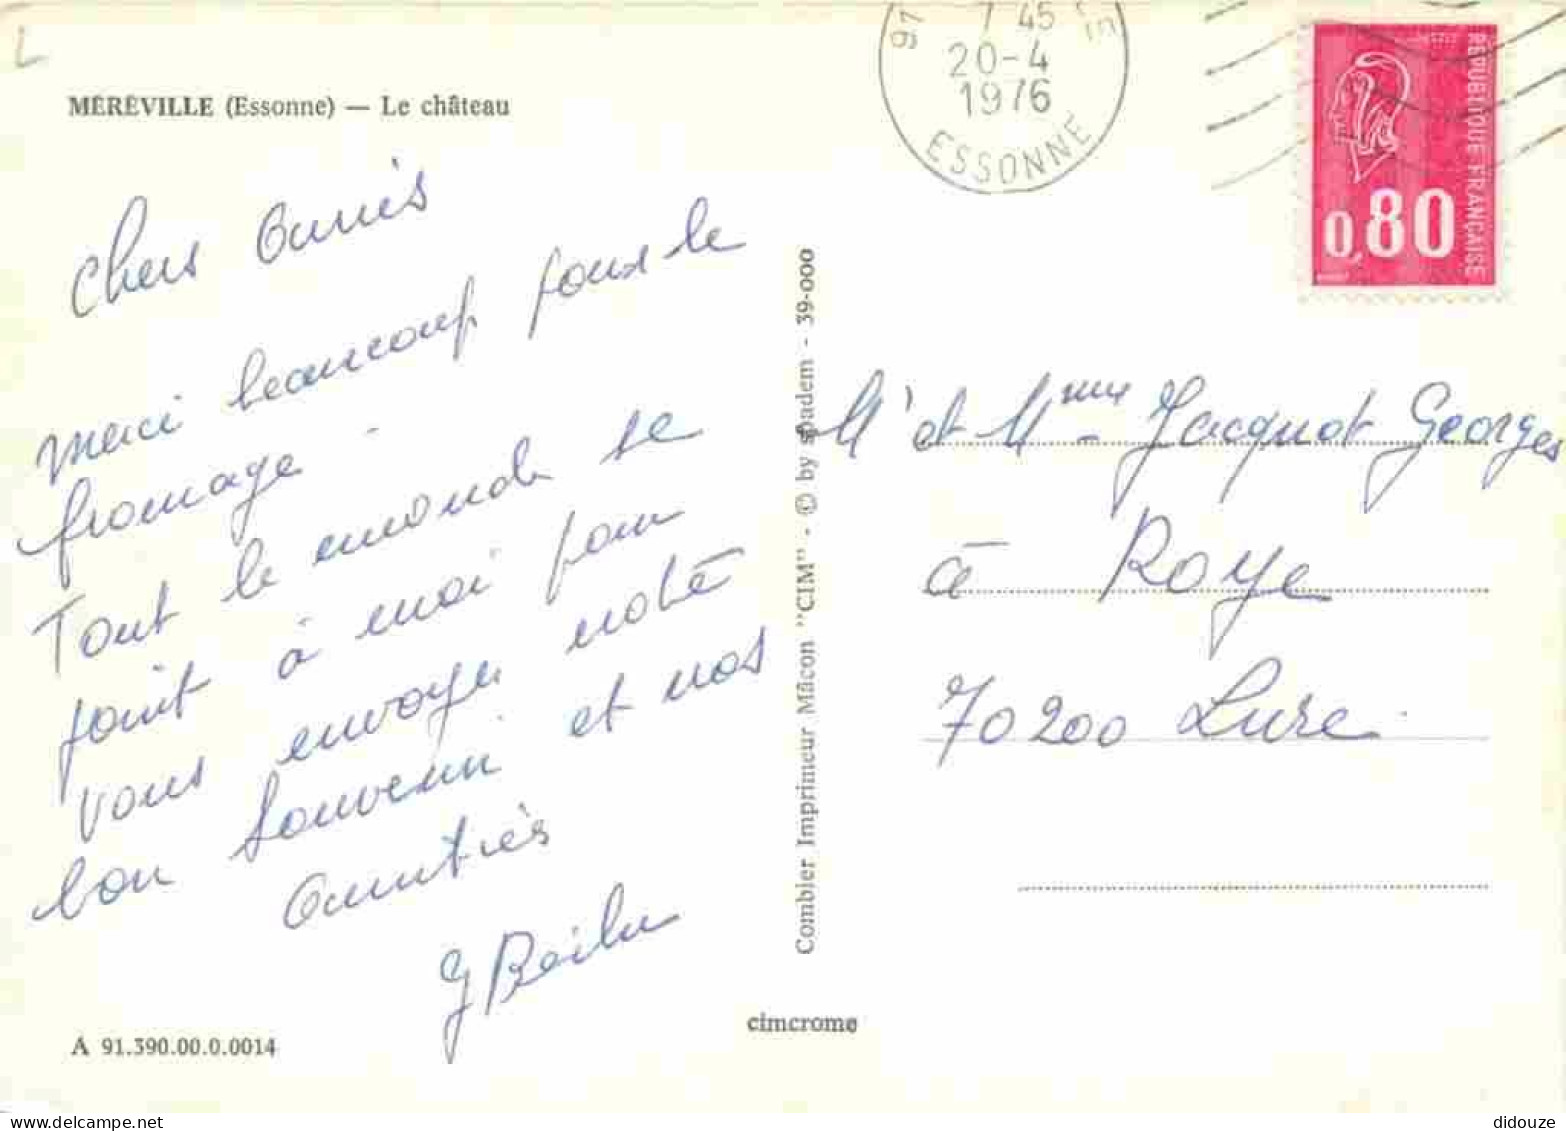 MÉRÉVILLE (Essonne) — Le château
Chers Amis
Merci beaucoup pour le
fromage -
Tout le monde se
joint à moi pour
vous envoyer notre
bon souvenir et nos
Amitiés
91 7 45
20-4
1976
ESSONNE
REPUBLIQUE FRANÇAISE
0,80
Mr et Mme - Jacquot Georges
à Roye
70200 Lure
Combier Imprimeur Mâcon "CIM" - © by spadem - 39-000
cimcrome
A 91.390.00.0.0014
didouze